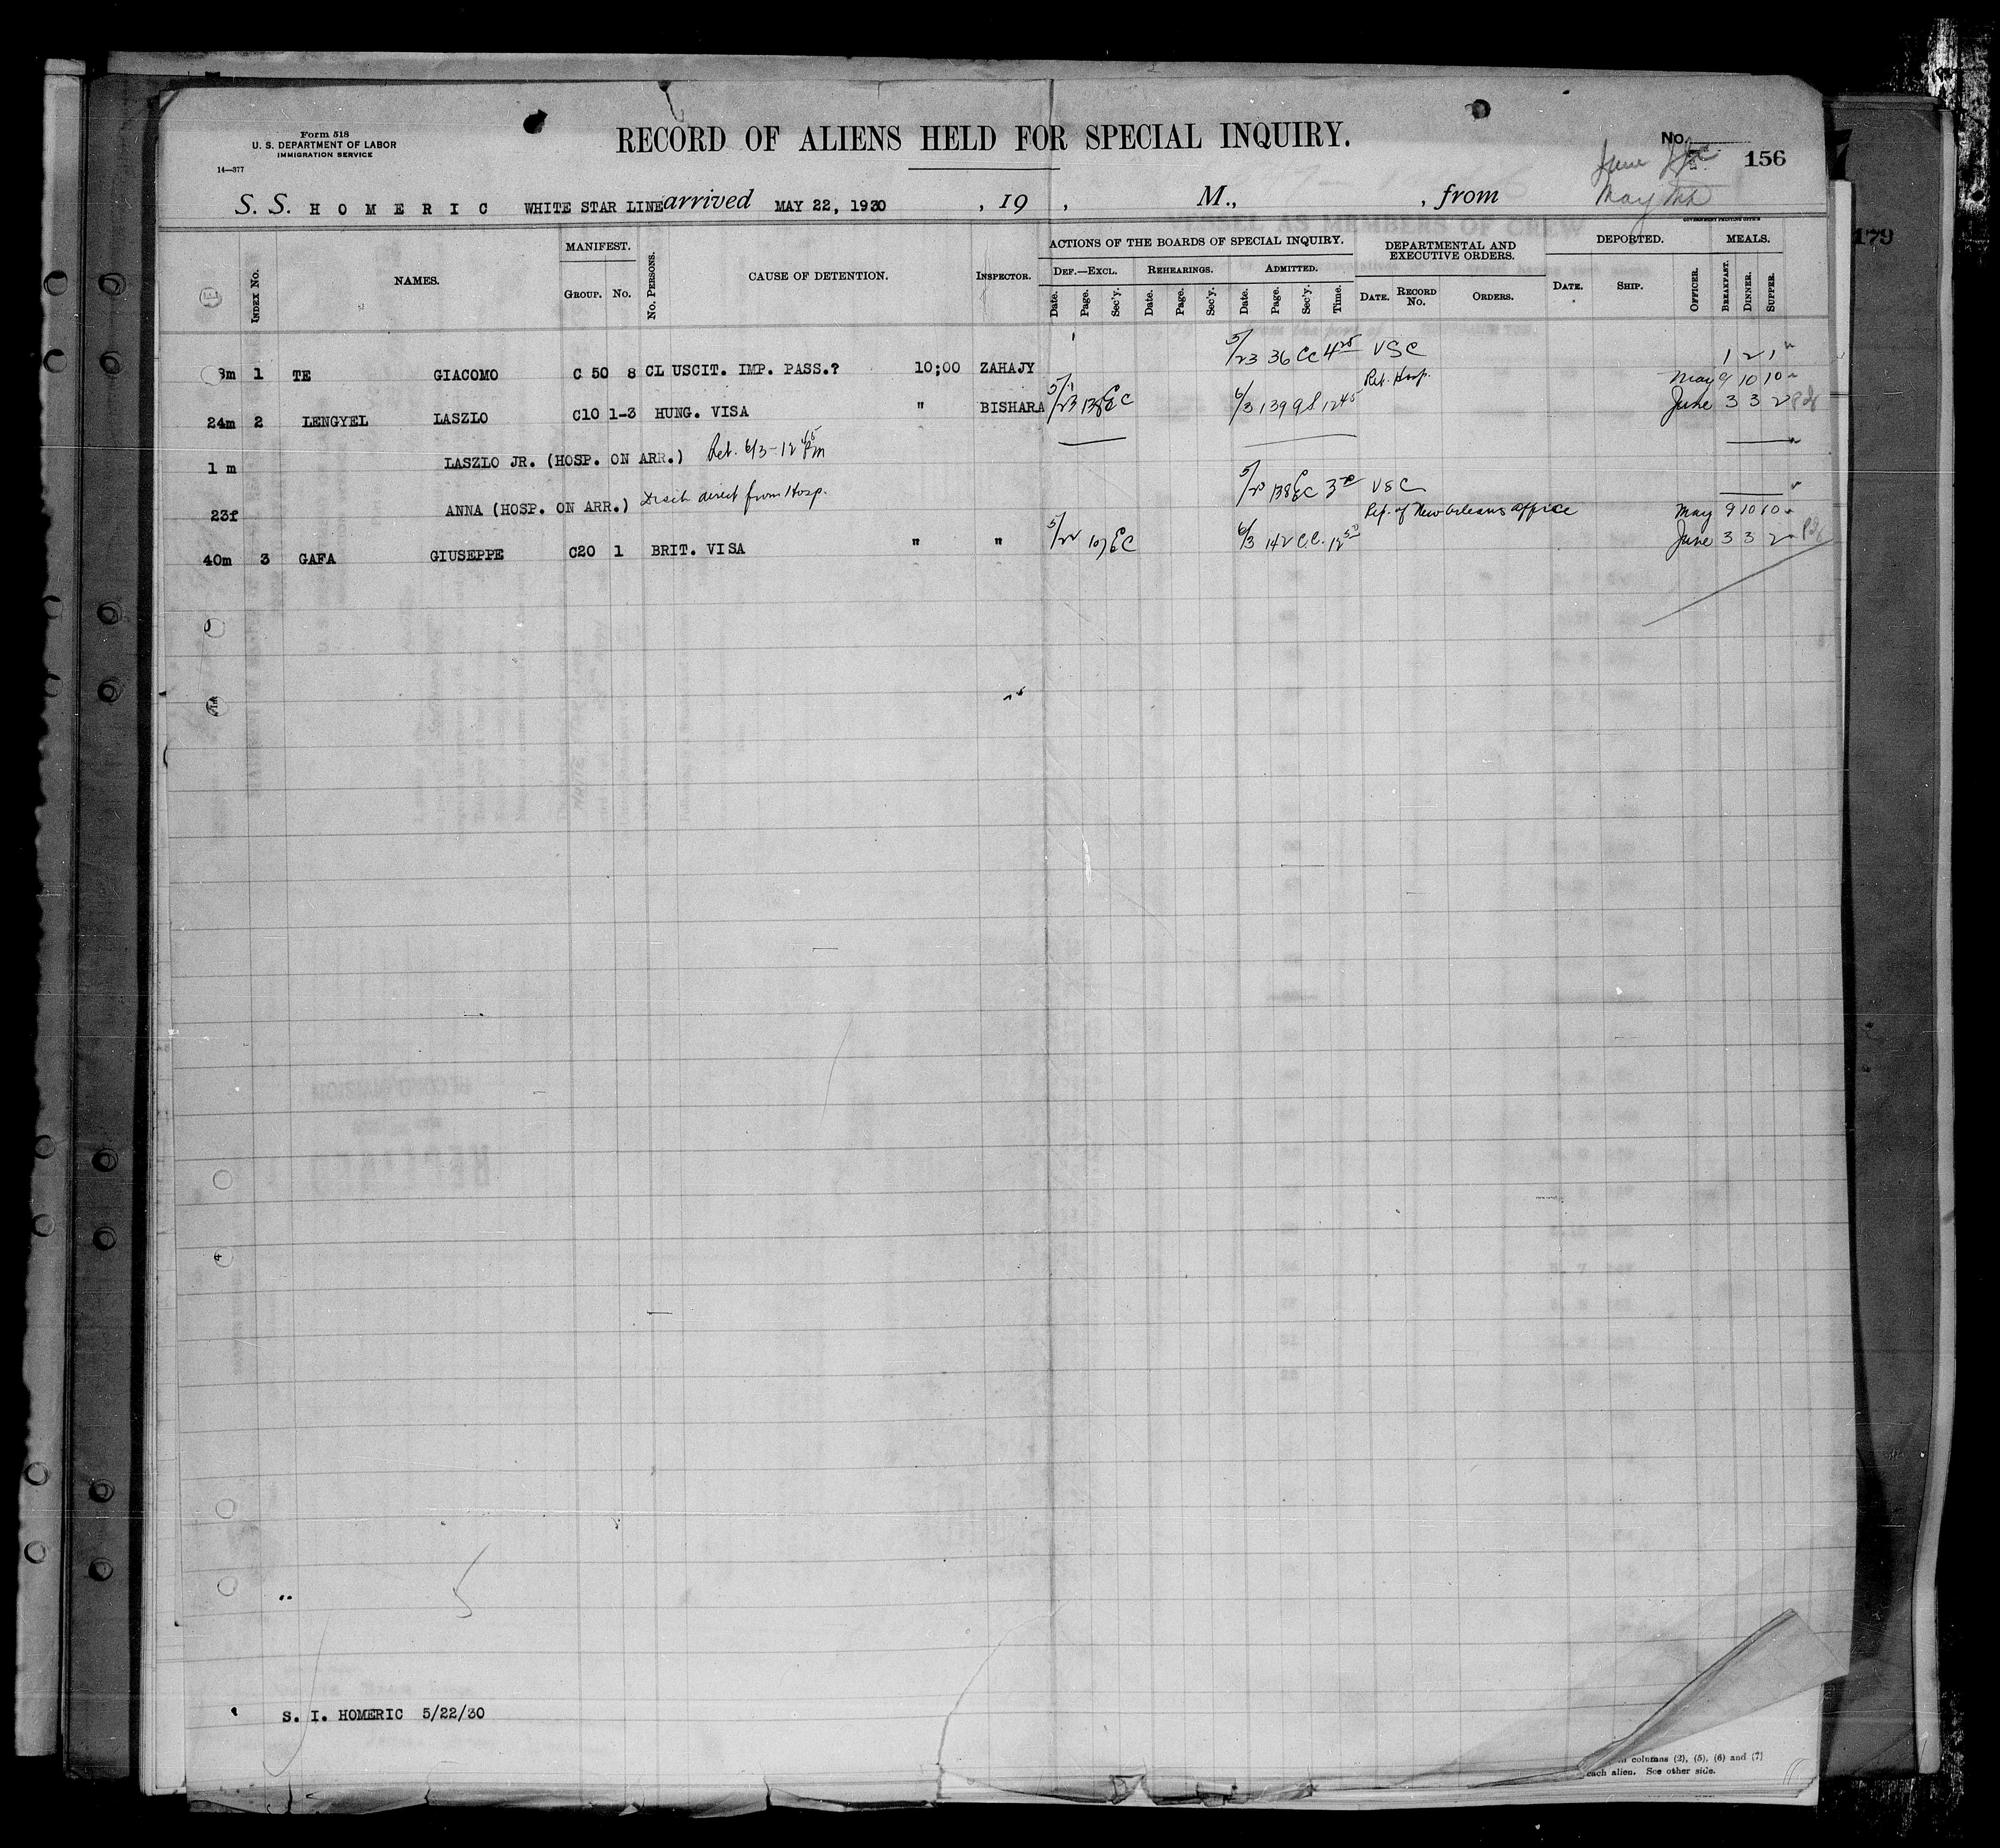 Form 518
U. S. DEPARTMENT OF LABOR
IMMIGRATION SERVICE
14—377
RECORD OF ALIENS HELD FOR SPECIAL INQUIRY.
No.
June
156
May
S. S. HOMERIC WHITE STAR LINE arrived MAY 22, 1930 , 19 , M., , from
GOVERNMENT PRINTING OFFICE
179
INDEX No.
NAMES.
MANIFEST.
GROUP. No.
No. PERSONS.
CAUSE OF DETENTION.
INSPECTOR.
ACTIONS OF THE BOARDS OF SPECIAL INQUIRY.
DEF.—EXCL. REHEARINGS. ADMITTED.
Date. Page. Sec'y. Date. Page. Sec'y. Date. Page. Sec'y. Time.
DEPARTMENTAL AND
EXECUTIVE ORDERS.
DATE. RECORD No. ORDERS.
DEPORTED.
DATE. SHIP.
OFFICER.
MEALS.
BREAKFAST. DINNER. SUPPER.
8m 1 TE GIACOMO C 50 8 CL USCIT. IMP. PASS.? 10;00 ZAHAJY 5/23 36 CC 4 25 VSC 1 2 1
Rel. Hosp. May 9 10 10
24m 2 LENGYEL LASZLO C10 1-3 HUNG. VISA " BISHARA 5/23 138 EC 6/3 139 12 45 June 3 3 2
1 m LASZLO JR. (HOSP. ON ARR.) Ret. 6/3 - 12 45 Pm
23f ANNA (HOSP. ON ARR.) Disch direct from Hosp. 5/23 138 EC 3 VSC
Rep. of New Orleans office May 9 10 10
40m 3 GAFA GIUSEPPE C20 1 BRIT. VISA " " 5/22 107 EC 6/3 142 C.C. 12 50 June 3 3 2
S. I. HOMERIC 5/22/30
in columns (2), (5), (6) and (7)
each alien. See other side.